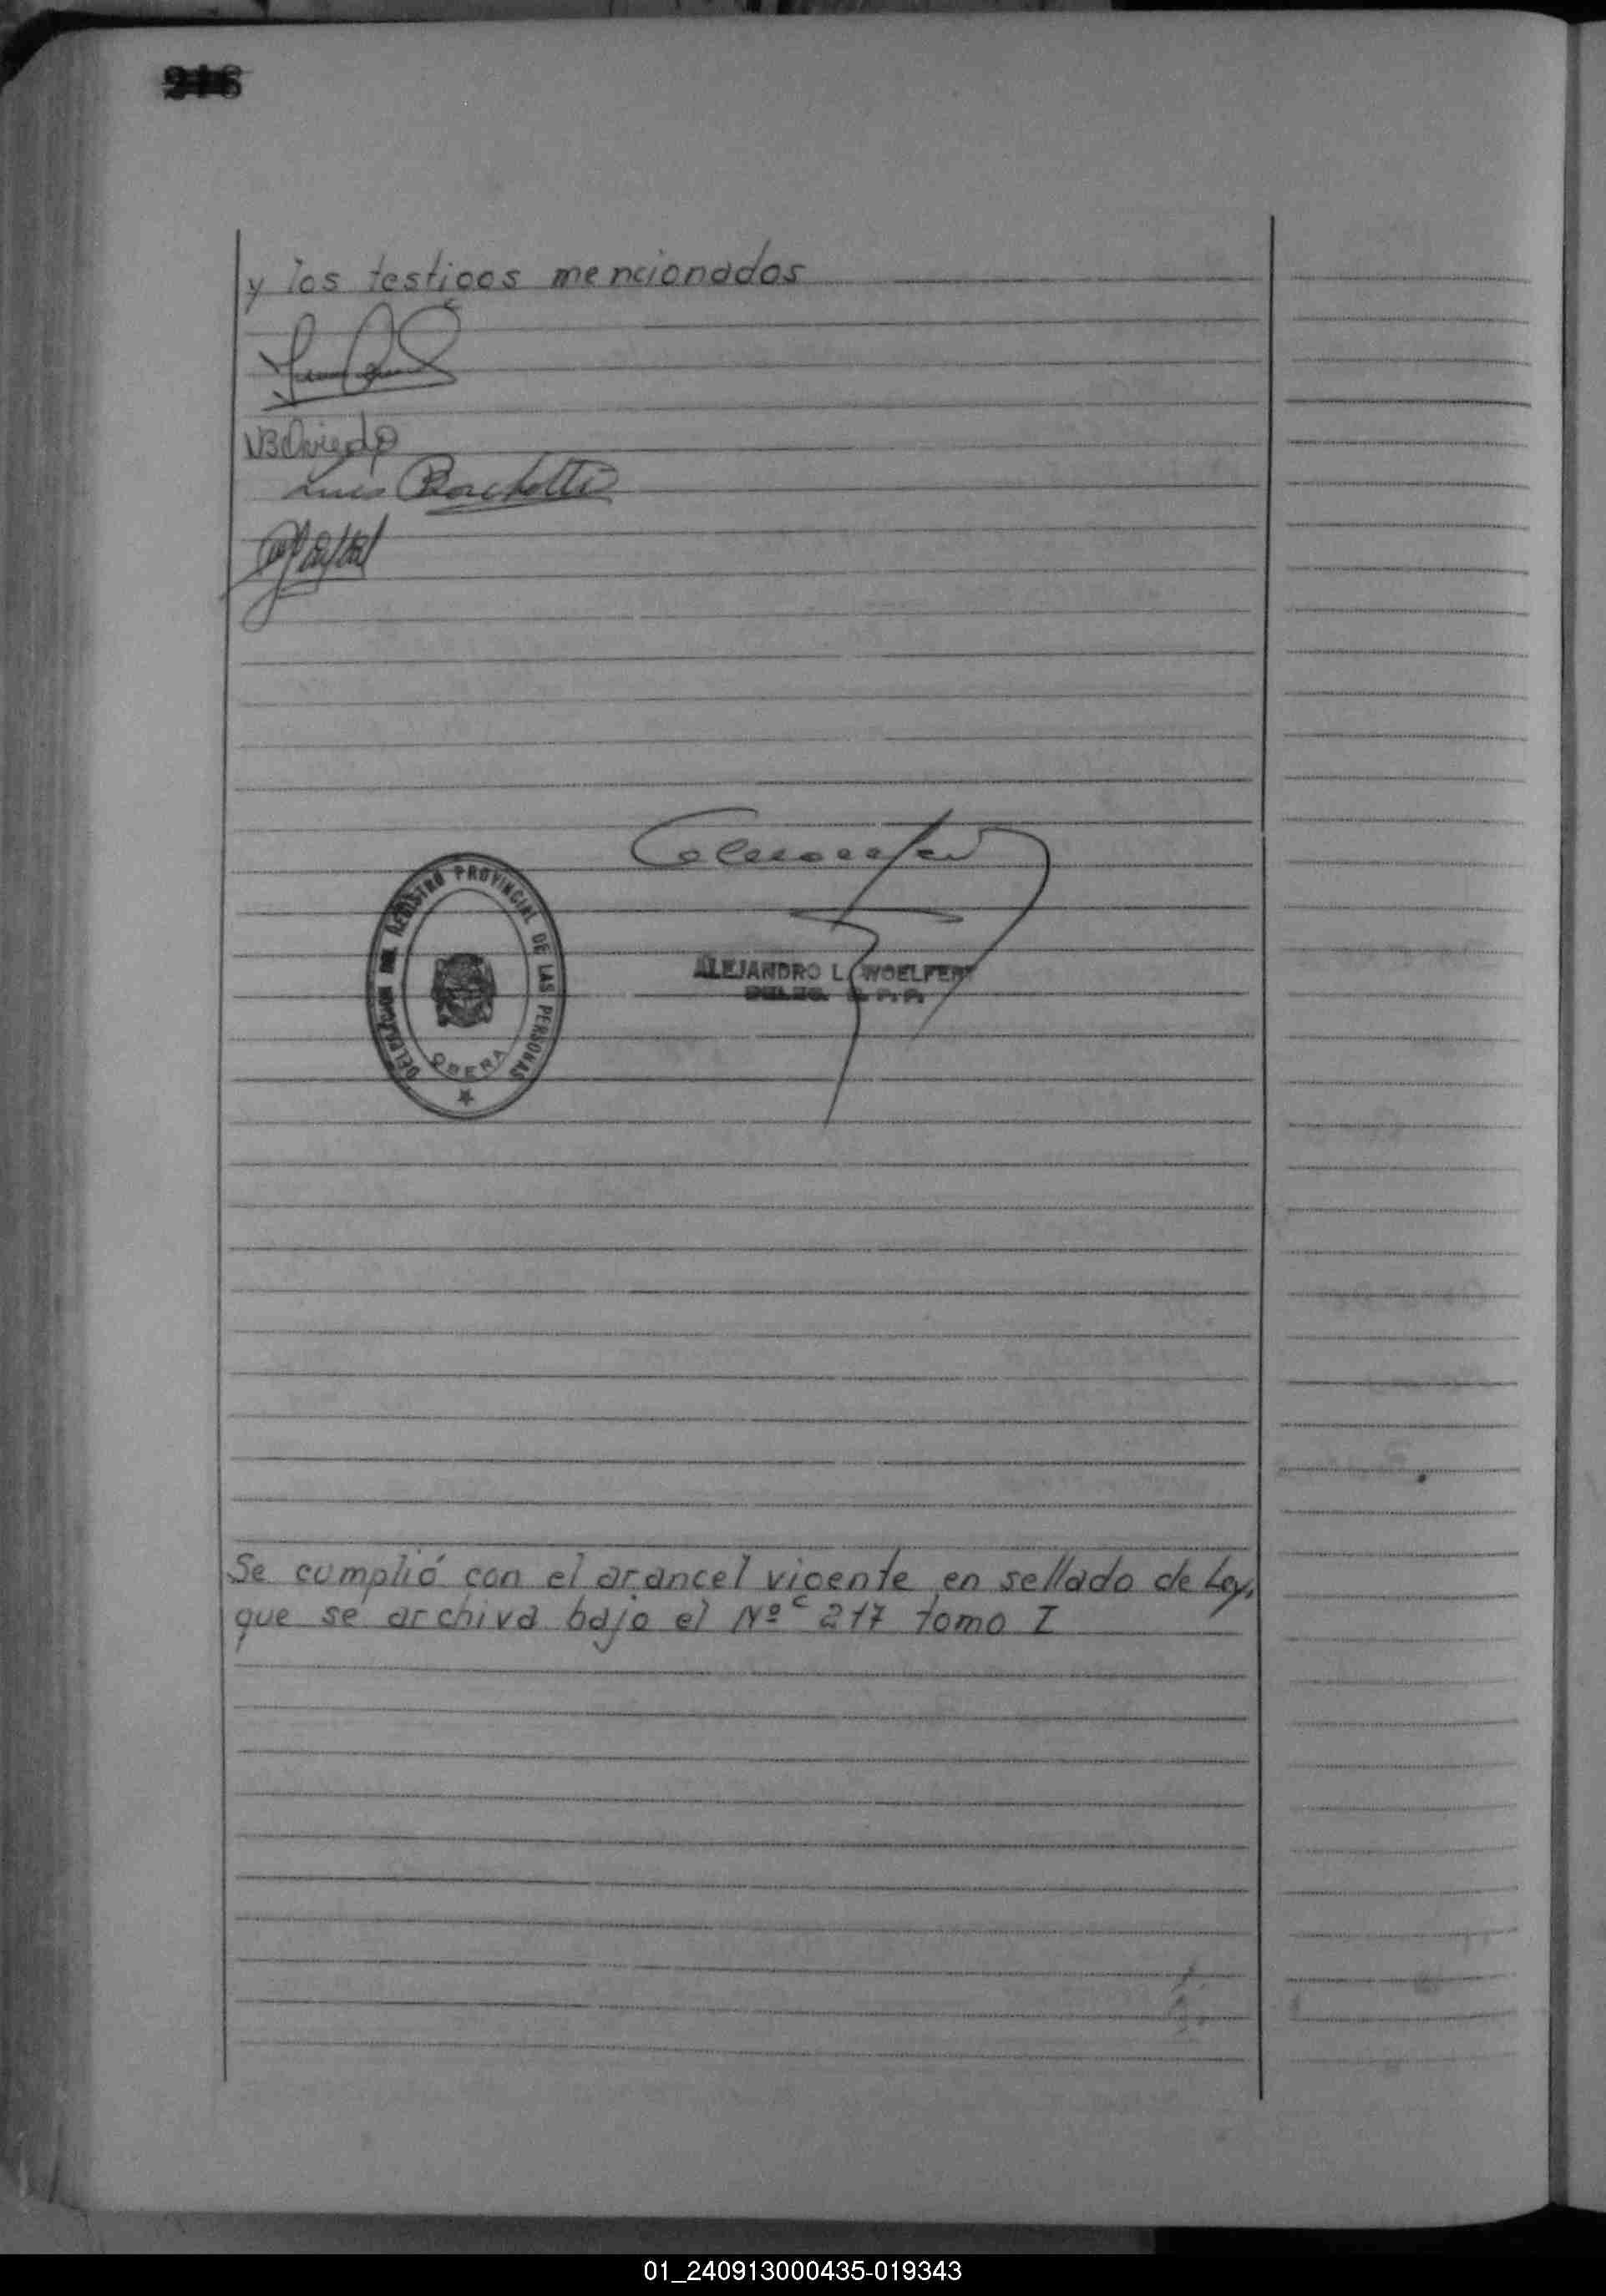 y los testigos mencionados
VBOviedo
Luis Bachetti
DELEGACION DEL REGISTRO PROVINCIAL DE LAS PERSONAS
OBERA
ALEJANDRO L. WOELFERT
DELEG. R. P. P.
Se cumplió con el arancel vigente en sellado de Ley,
que se archiva bajo el Nº 217 tomo I
01_240913000435-019343